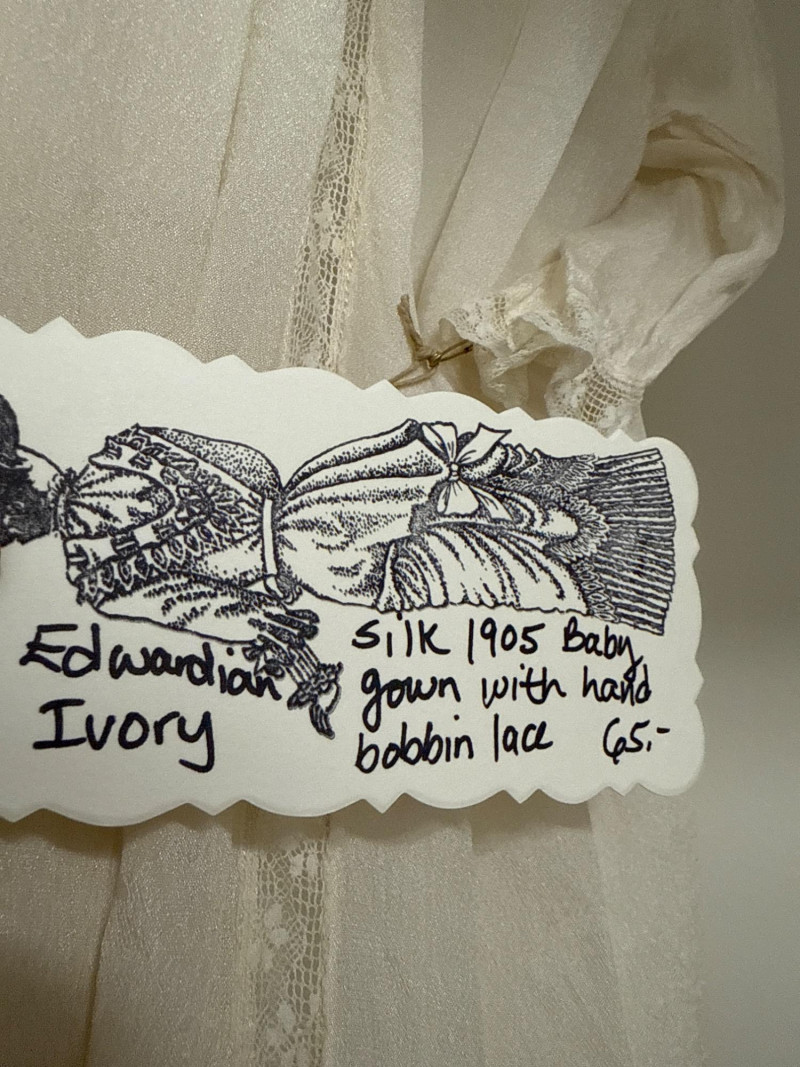 Edwardian
Ivory
Silk 1905 Baby
gown with hand
bobbin lace 65.-